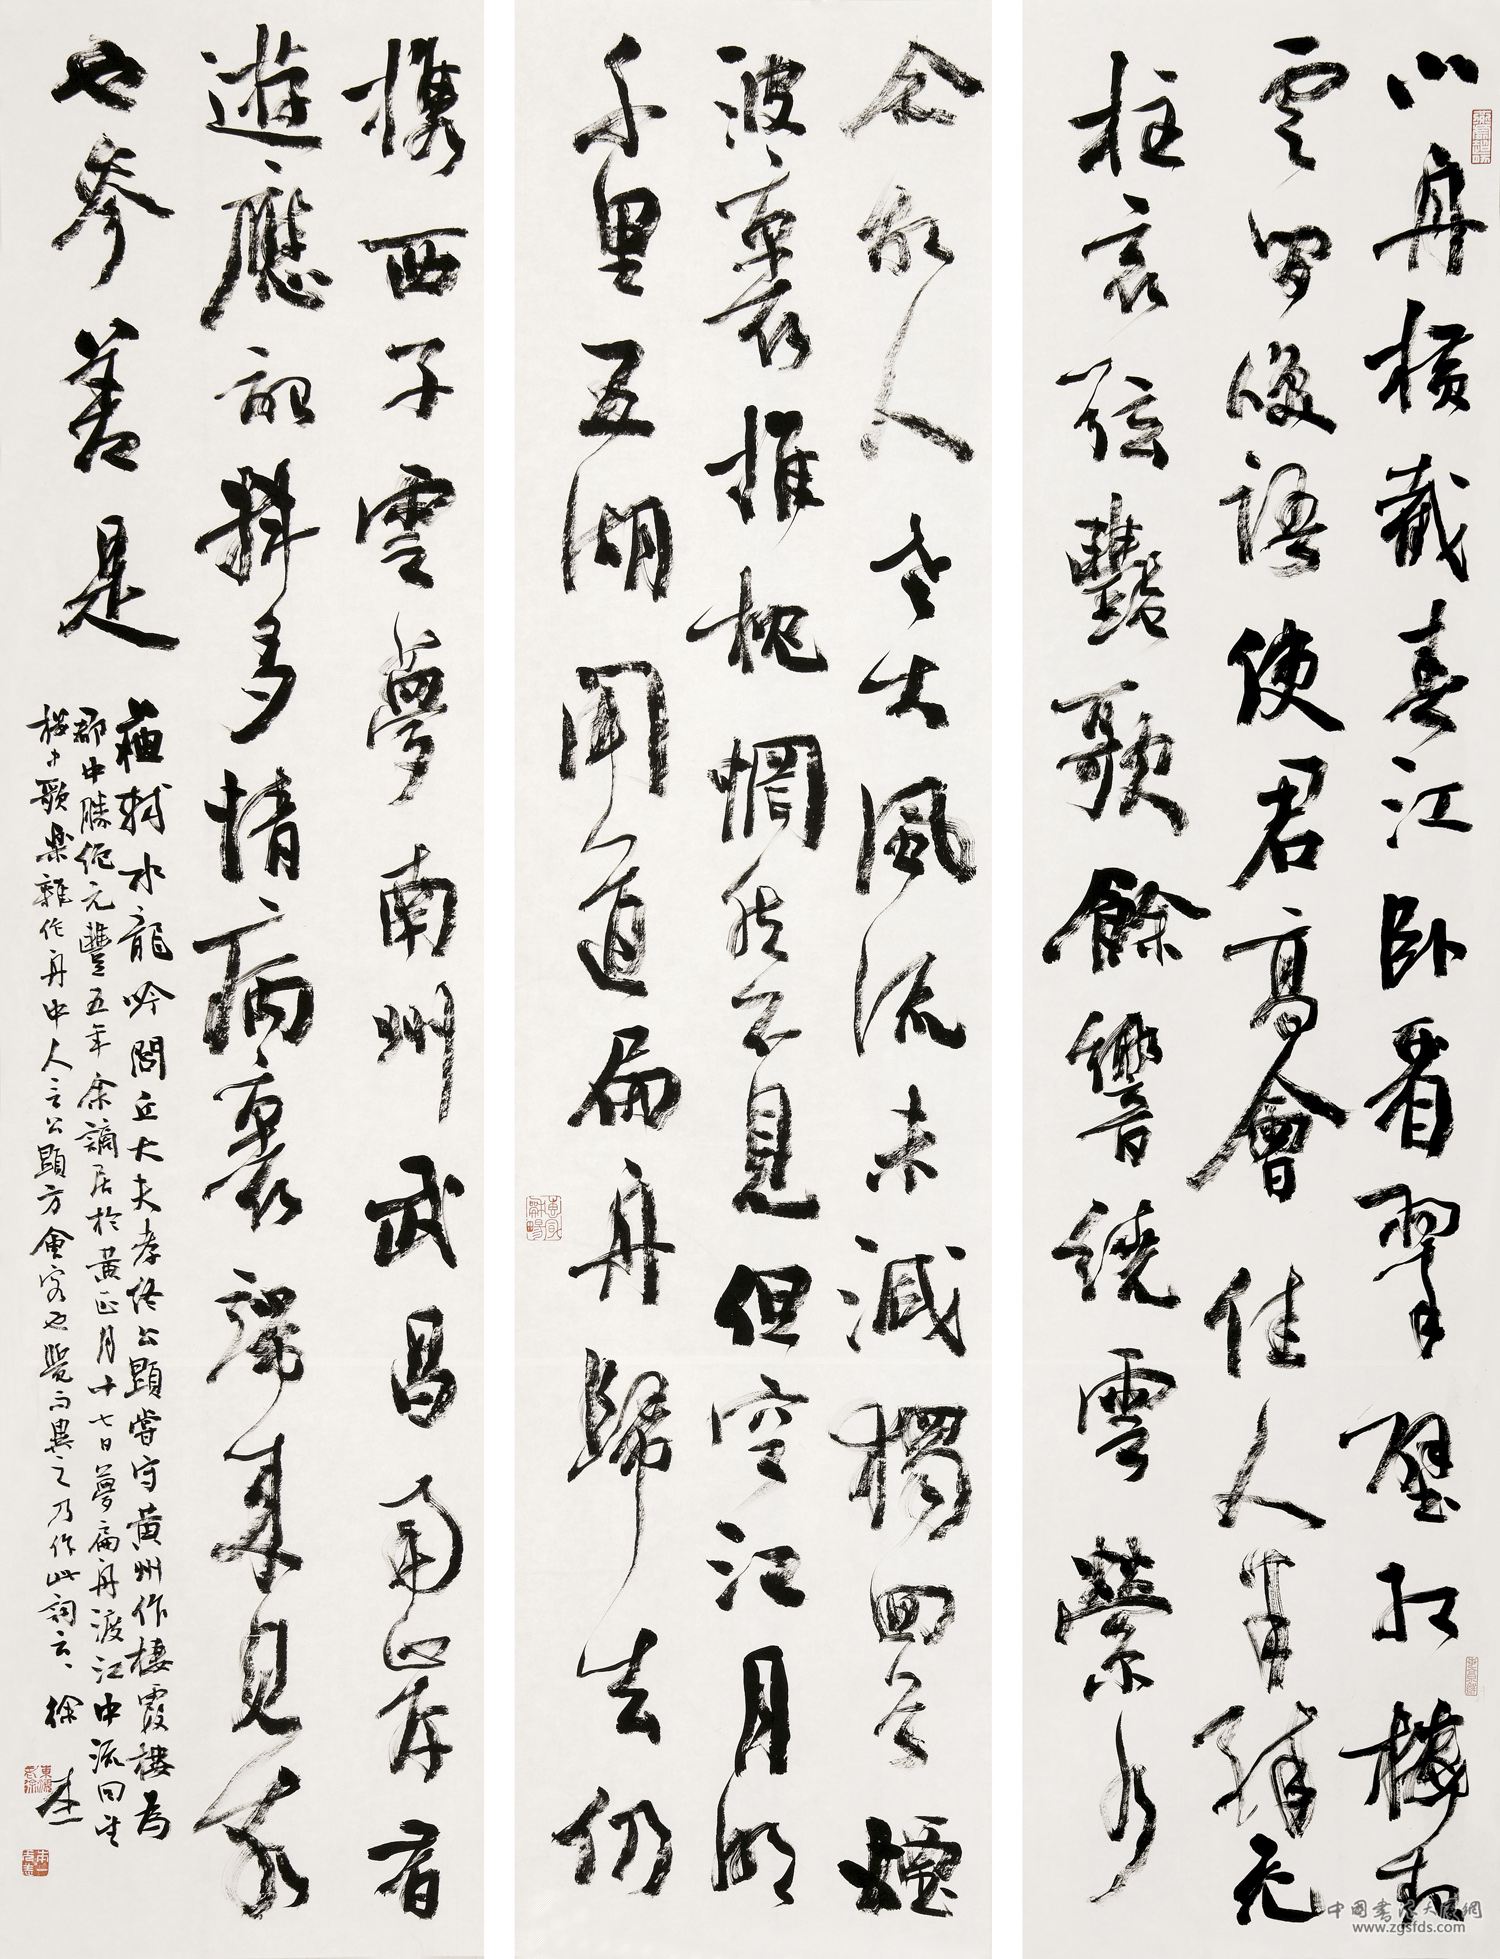 小舟橫截春江卧看翠壁紅樓起
雲間咲語使君高會佳人半醉危
柱哀弦艷歌餘響繞雲縈水
念故人老大風流未減獨回首煙
波裏推枕惘然不見但空江月明
千里五湖聞道扁舟歸去仍
携西子雲夢南州武昌南岸昔
遊應記料多情病裏端來見我
也參差是
蘇軾水龍吟閭丘大夫孝終公顯嘗守黃州作棲霞樓為
郡中勝絕元豐五年余謫居於黃正月十七日夢扁舟渡江中流回望
樓中歌樂雜作舟中人言公顯方會客也覺而異之乃作此詞云徐
中國書法大展網
www.zgsfds.com